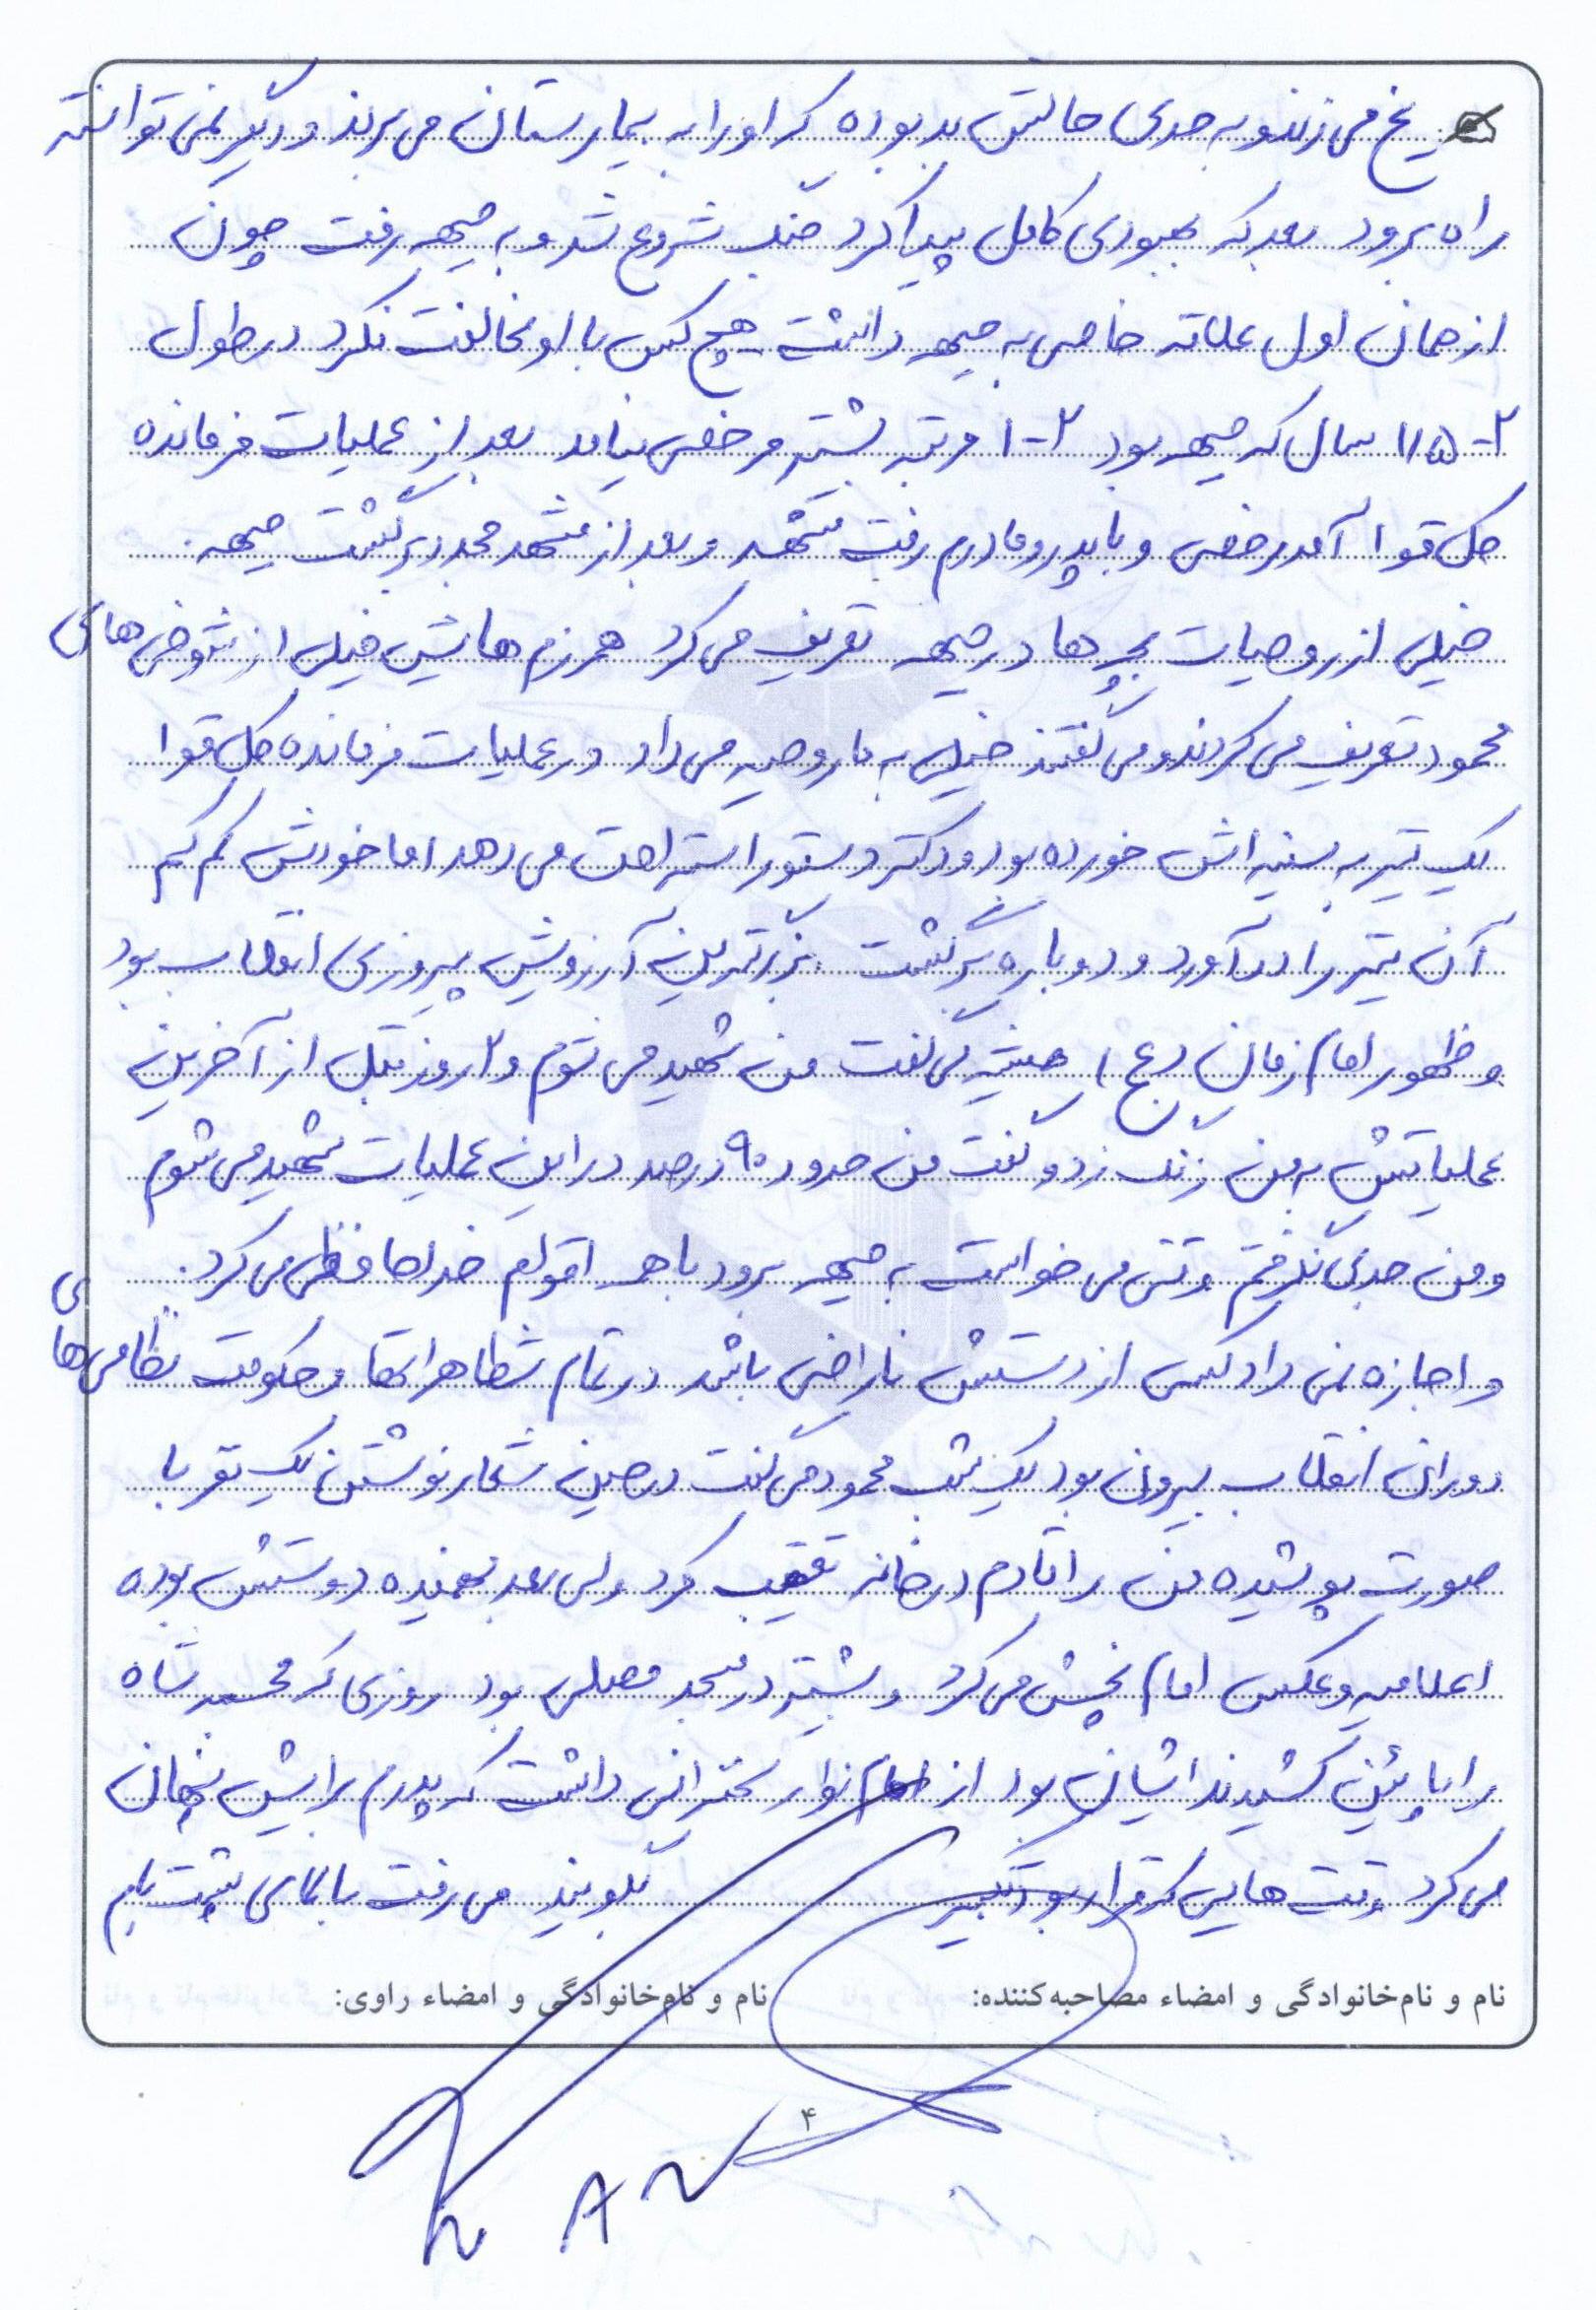 یخ می زند و به حدی حالتش بد بوده که او را به بیمارستان می برند و دیگر نمی توانسته
راه برود بعد که بهبودی کامل پیدا کرد جنگ شروع شد و به جبهه رفت چون
از همان اول علاقه خاصی به جبهه داشت هیچ کس با او مخالفت نکرد در طول
۲-۱/۵ سال که جبهه بود ۲-۱ مرتبه بیشتر مرخصی نیامد بعد از عملیات فرمانده
کل قوا آمد مرخصی و با پدر و مادرم رفت مشهد و بعد از مشهد مجدد برگشت جبهه.
خیلی از روحیات بچه ها در جبهه تعریف می کرد همرزم هایش خیلی از شوخی های
محمود تعریف می کردند و می گفتند خیلی به ما روحیه می داد در عملیات فرمانده کل قوا
یک تیر به سینه اش خورده بود و دکتر دستور استراحت می دهد اما خودش کم کم
آن تیر را درآورد و دوباره برگشت. بزرگترین آرزویش پیروزی انقلاب بود
و ظهور امام زمان (عج) همیشه می گفت من شهید می شوم و ۲ روز قبل از آخرین
عملیاتش به من زنگ زد و گفت من حدود ۹۰ درصد در این عملیات شهید می شوم
و من جدی نگرفتم وقتی می خواست به جبهه برود با همه اقوام خداحافظی می کرد.
و اجازه نمی داد کسی از دستش ناراضی باشد در تمام تظاهراتها و حکومت نظامی های
دوران انقلاب بیرون بود یک شب محمود می گفت در حین شعار نوشتن یک نفر با
صورت پوشیده من را تا دم در خانه تعقیب کرد ولی بعد فهمیده دوستش بوده
اعلامیه و عکس امام پخش می کرد و بیشتر در مسجد مصلی بود روزی که مجسمه شاه
را پائین کشیدند ایشان بود از امام نوار سخنرانی داشت که پدرم برایش پنهان
می کرد وقت هایی که قرار بود تکبیر بگویند می رفت بالای پشت بام
نام و نام‌خانوادگی و امضاء مصاحبه‌کننده: نام و نام‌خانوادگی و امضاء راوی:
۴